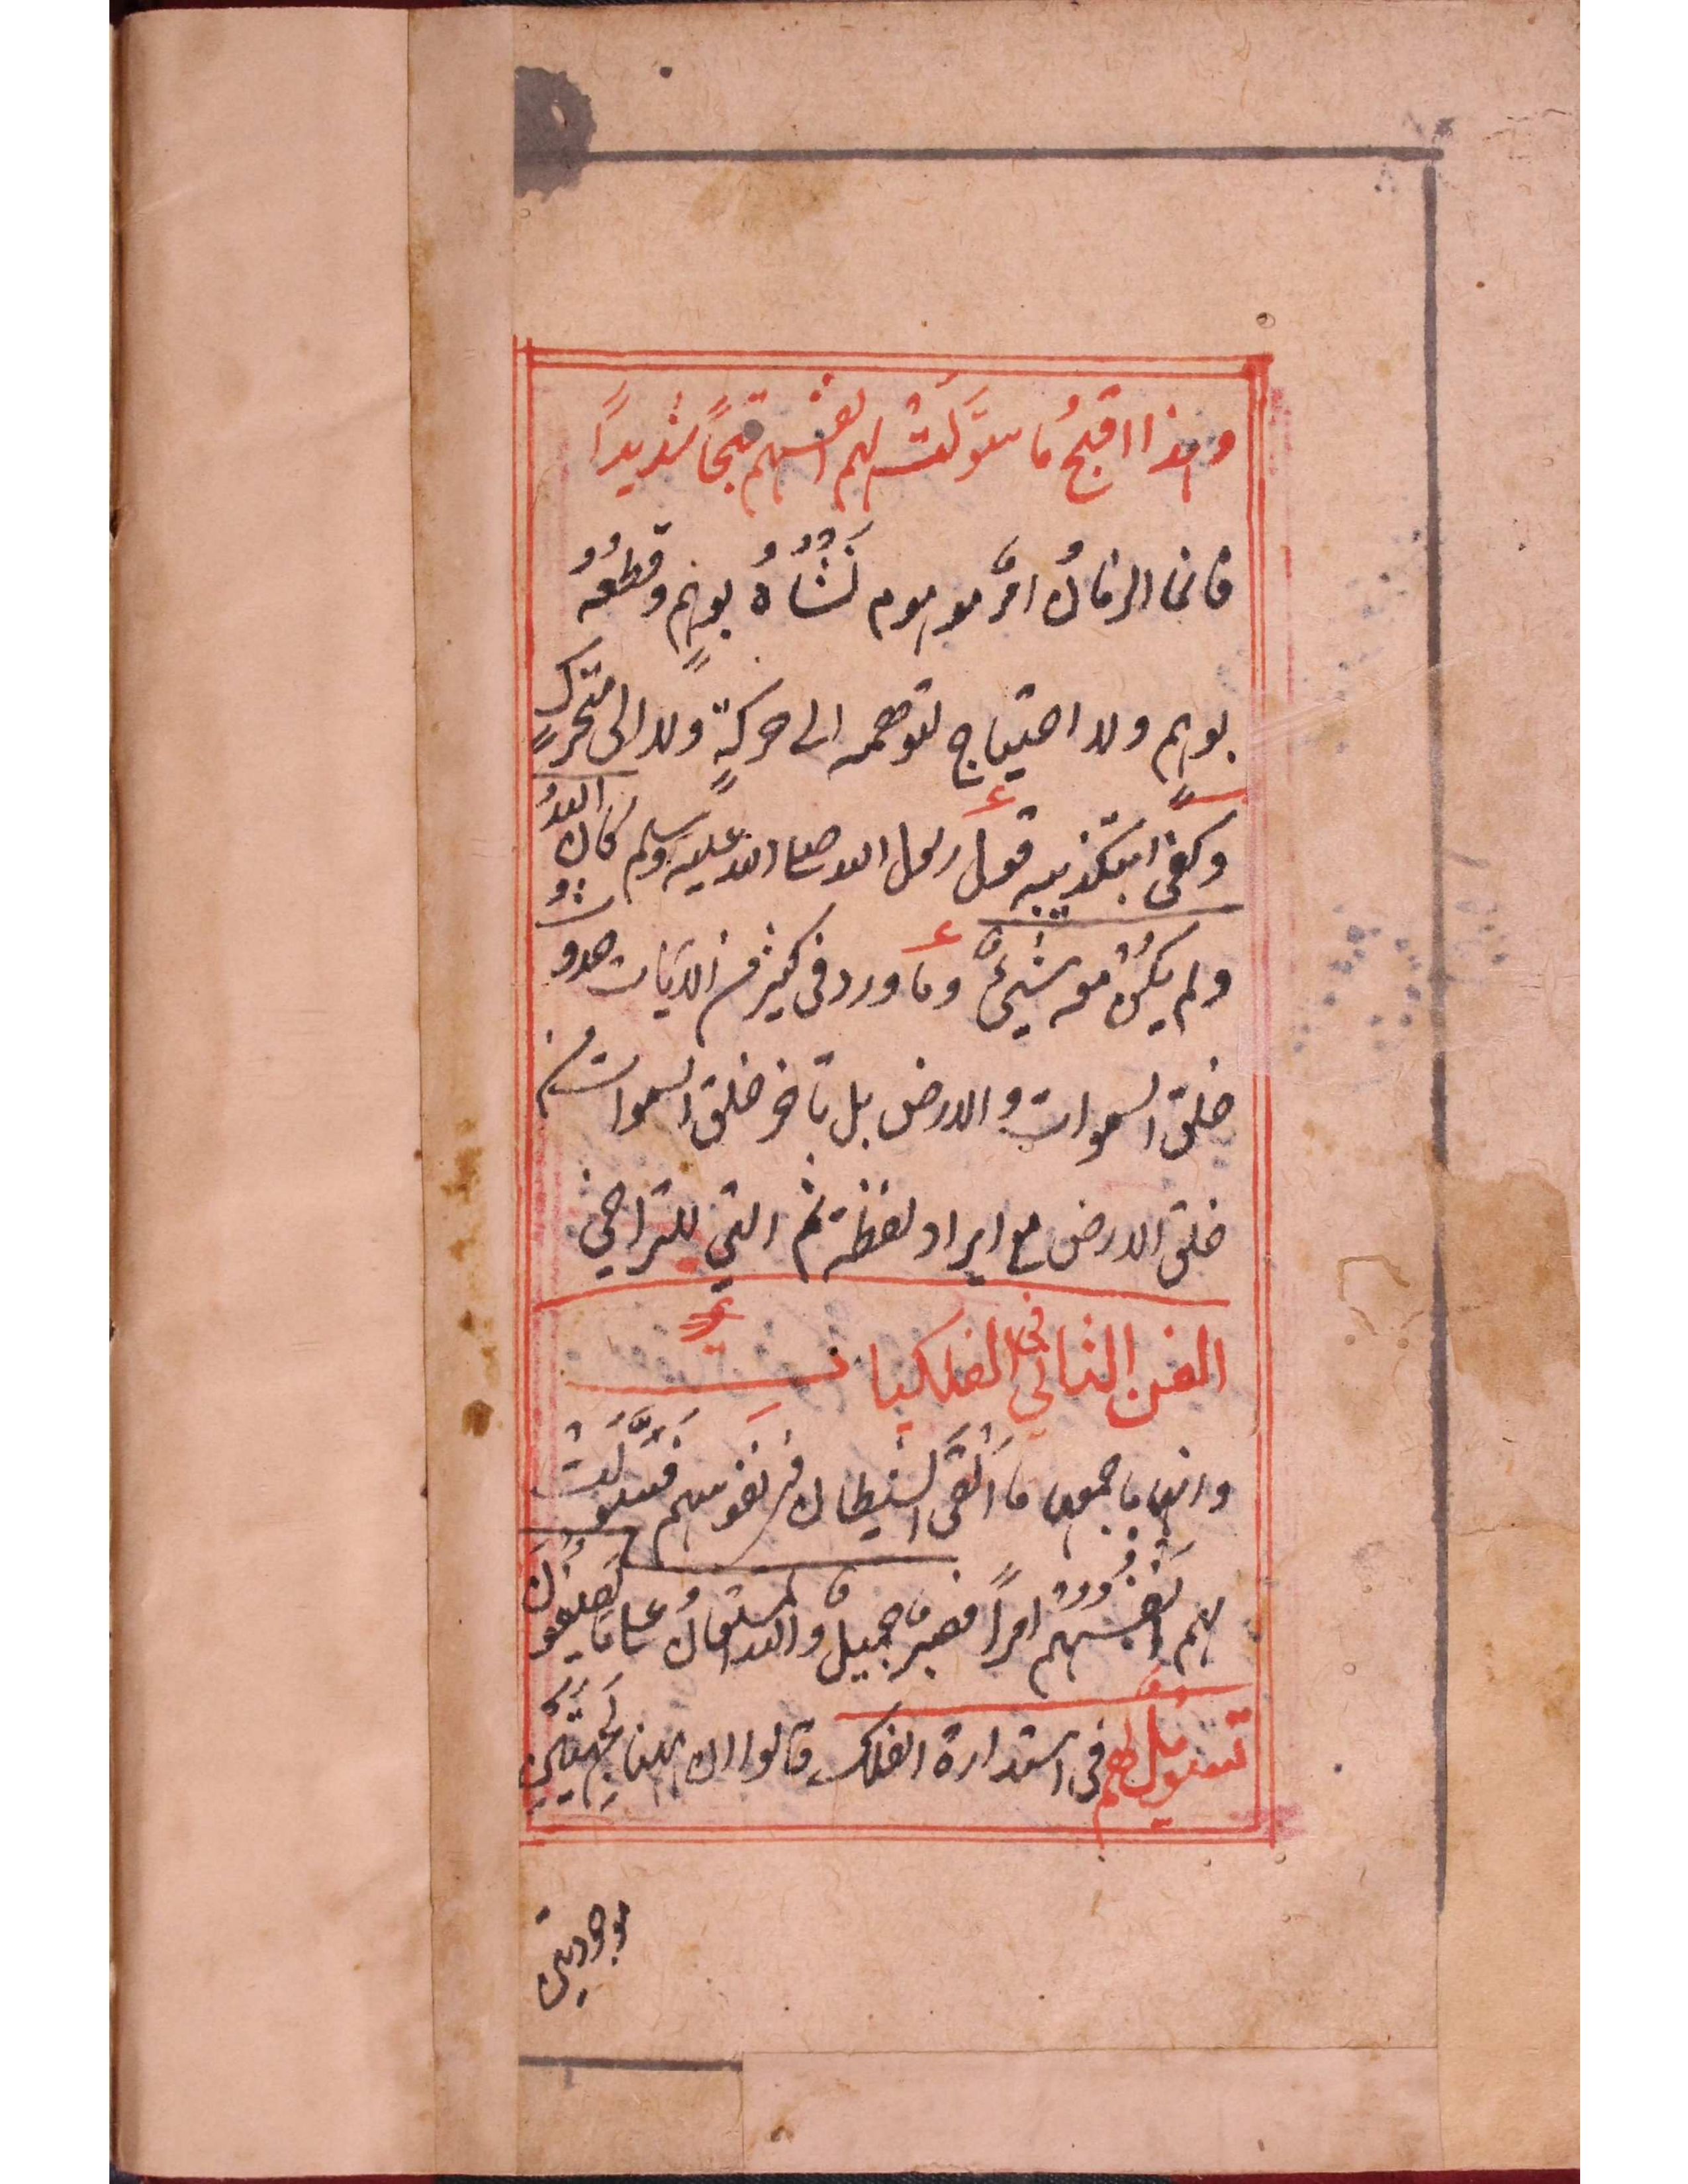 وهذا اقبحُ ما سَوَّلَتْ لهم انفسهم قبحًا شديدًا
فانما الزمانُ امرٌ موهوم نَشْأُهُ بوهمٍ وقطعُهُ
بوهم ولا احتياج لتوهمه الى حركةٍ ولا الى متحركٍ
وكفى بتكذيبه قول رسول الله صلى الله عليه وسلم كان اللهُ
ولم يكُنْ معه شيءٌ وما ورد فى كثير من الايات حدوث
خلق السموات والارض بل تاخر خلق السموات من
خلق الارض مع ايراد لفظة ثم التي للتراخي
الفن الثاني في الفلكيات
وانها باجمعها ما اَلْقَى الشيطان فى نفوسهم فَسَوَّلَتْ
لهم اَنْفُسُهُمْ امرًا فصبرٌ جميلٌ والله المستعانُ على ما يصفونَ
تسويلٌ لهم فى استدارة الفلك قالوا ان ههنا جهتين
موجودتين